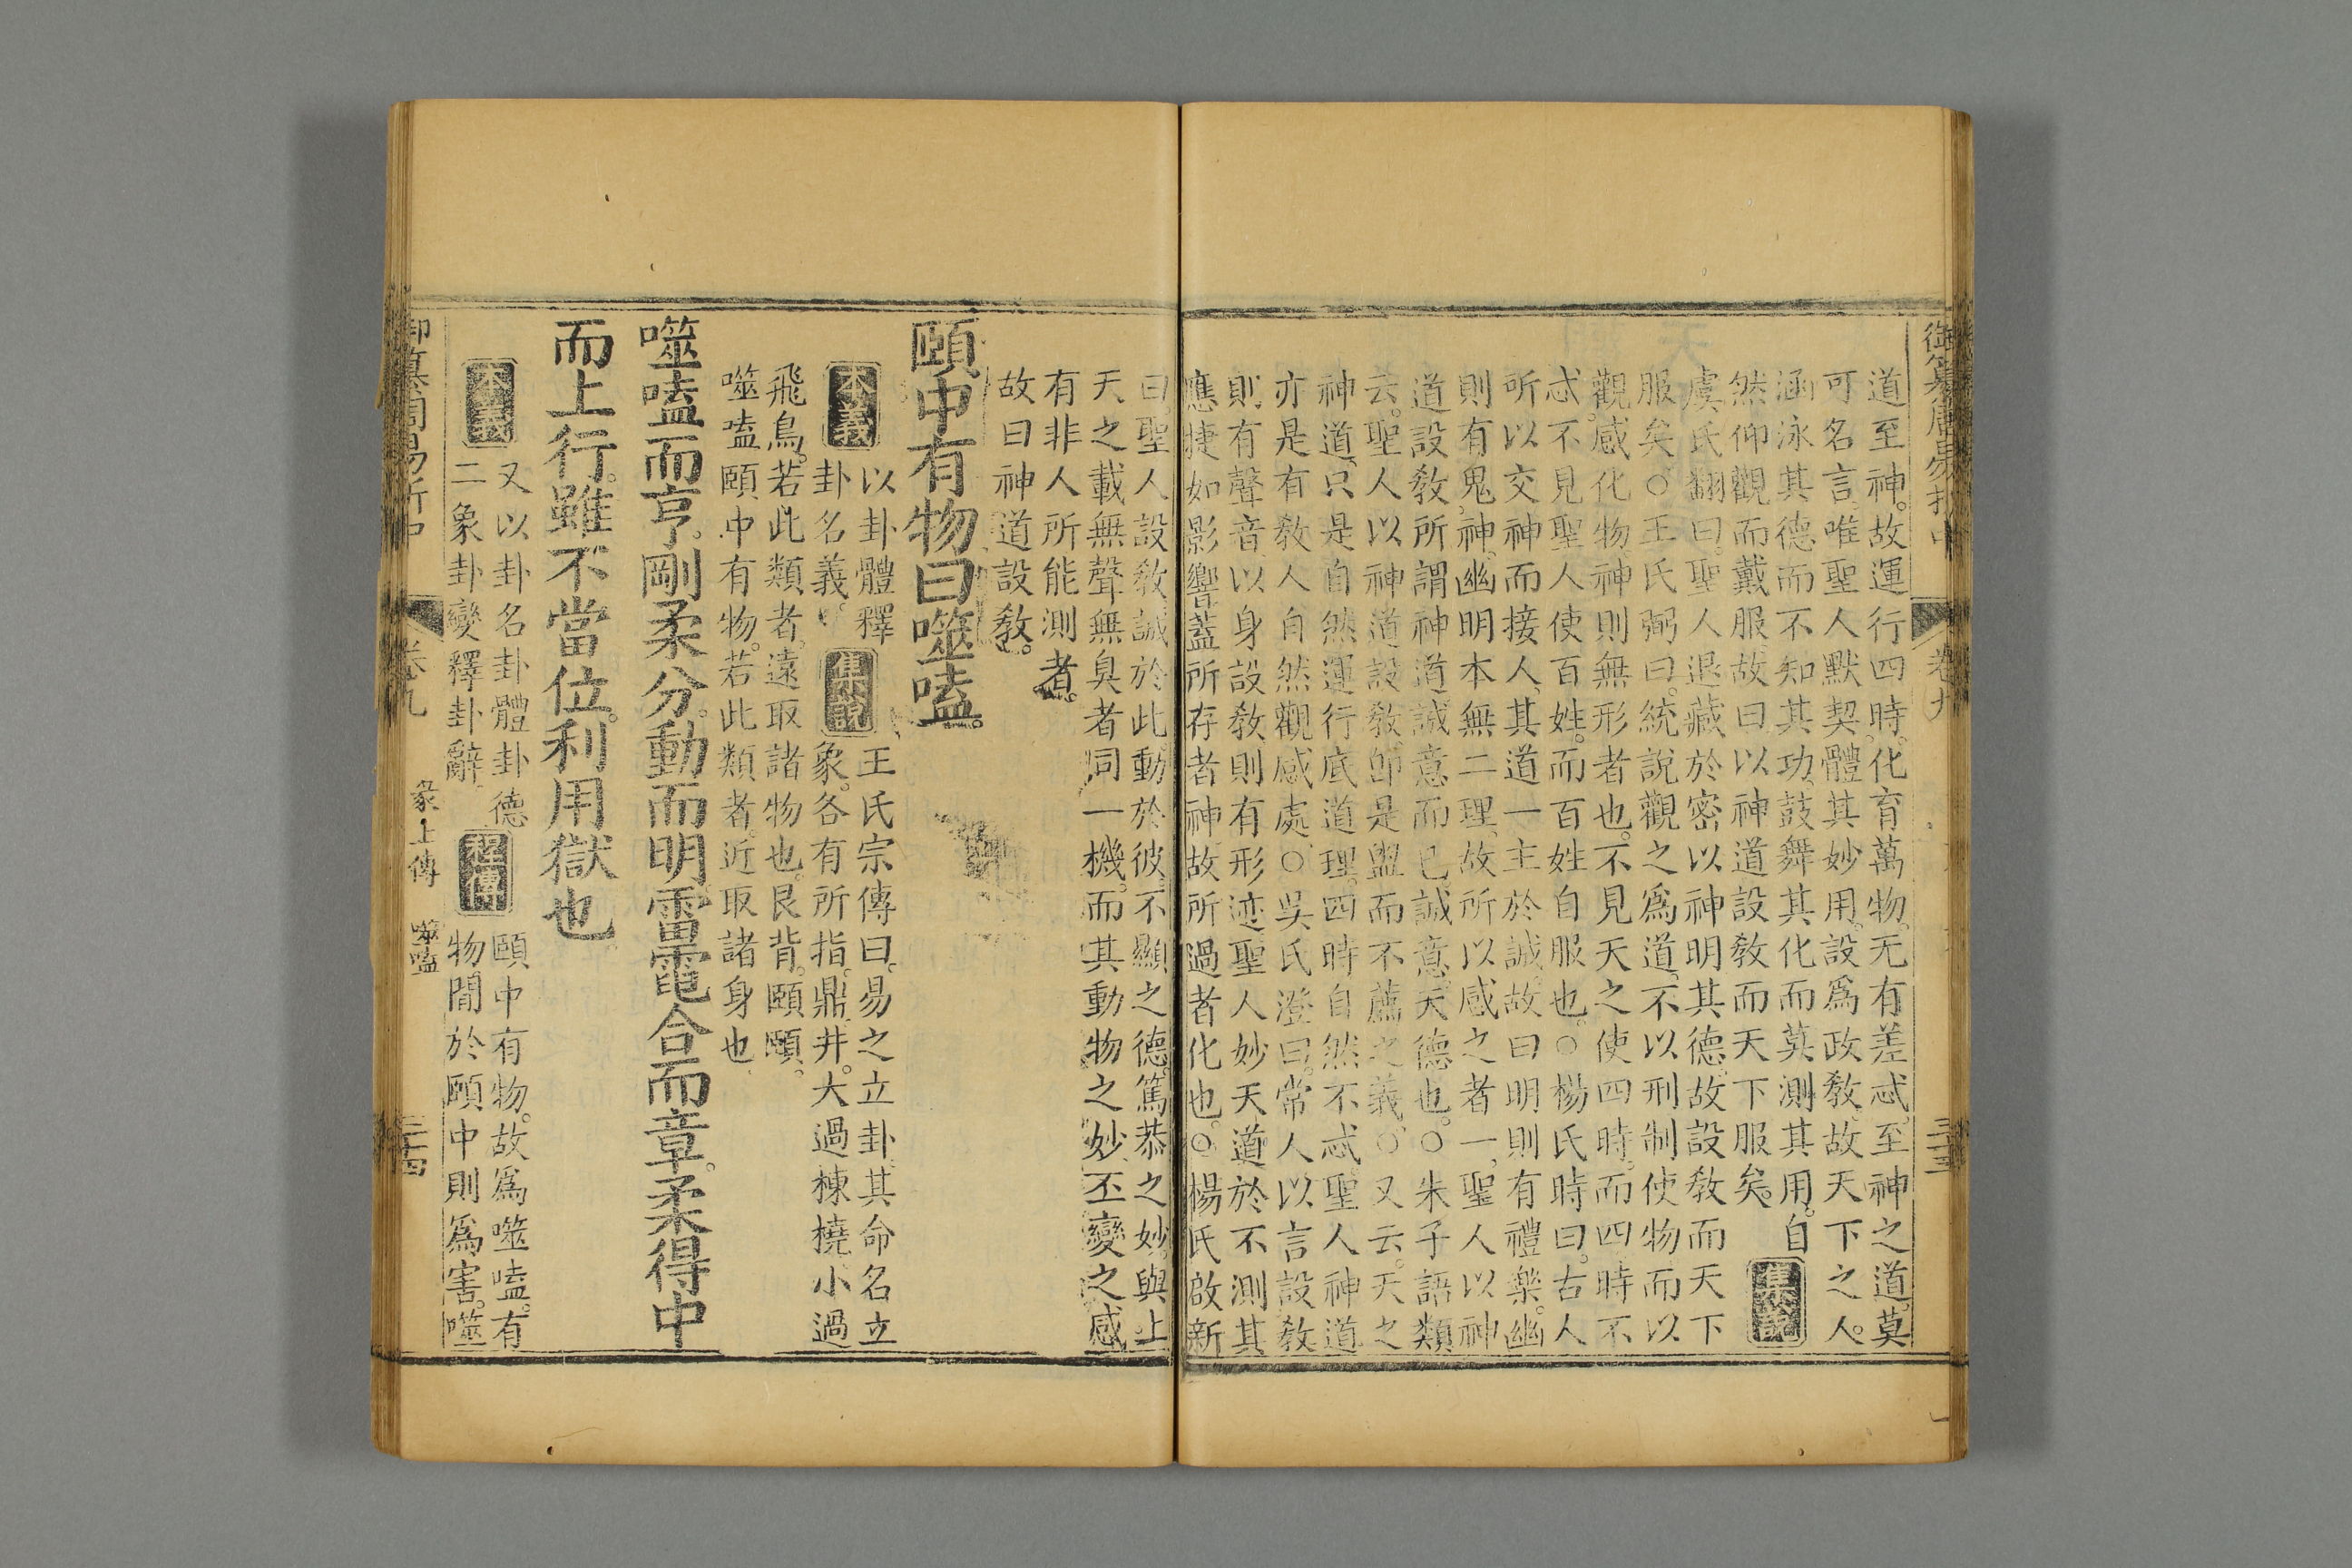 御纂周易折中 卷九 三十三
道至神。故運行四時。化育萬物。无有差忒。至神之道。莫
可名言。唯聖人默契。體其妙用。設爲政敎。故天下之人。
涵泳其德而不知其功。鼓舞其化而莫測其用。自
然仰觀而戴服。故曰。以神道設敎而天下服矣。集說
虞氏翻曰。聖人退藏於密。以神明其德。故設敎而天下
服矣。○王氏弼曰。統說觀之爲道。不以刑制使物。而以
觀感化物。神則無形者也。不見天之使四時。而四時不
忒。不見聖人使百姓。而百姓自服也。○楊氏時曰。古人
所以交神而接人。其道一主於誠。故曰明則有禮樂。幽
則有鬼神。幽明本無二理。故所以感之者一。聖人以神
道設敎。所謂神道。誠意而已。誠意。天德也。○朱子語類
云。聖人以神道設敎。卽是盥而不薦之義。○又云。天之
神道。只是自然運行底道理。四時自然不忒。聖人神道
亦是有敎人自然觀感處。○吳氏澄曰。常人以言設敎
則有聲音。以身設敎則有形迹。聖人妙天道於不測。其
應捷如影響。蓋所存者神。故所過者化也。○楊氏啟新
曰。聖人設敎。誠於此。動於彼。不顯之德。篤恭之妙。與上
天之載無聲無臭者同一機。而其動物之妙。丕變之感
有非人所能測者。
故曰神道設敎。
頤中有物曰噬嗑。
本義 以卦體釋
卦名義。 集說 王氏宗傳曰。易之立卦。其命名立
象。各有所指。鼎。井。大過棟橈。小過
飛鳥。若此類者。遠取諸物也。艮背。頤頤。
噬嗑頤中有物。若此類者。近取諸身也。
噬嗑而亨。剛柔分。動而明。雷電合而章。柔得中
而上行。雖不當位。利用獄也
本義 又以卦名卦體卦德
二象卦變釋卦辭 程傳 頤中有物。故爲噬嗑。有
物間於頤中則爲害。噬
御纂周易折中 卷九 彖上傳 噬嗑 三十四